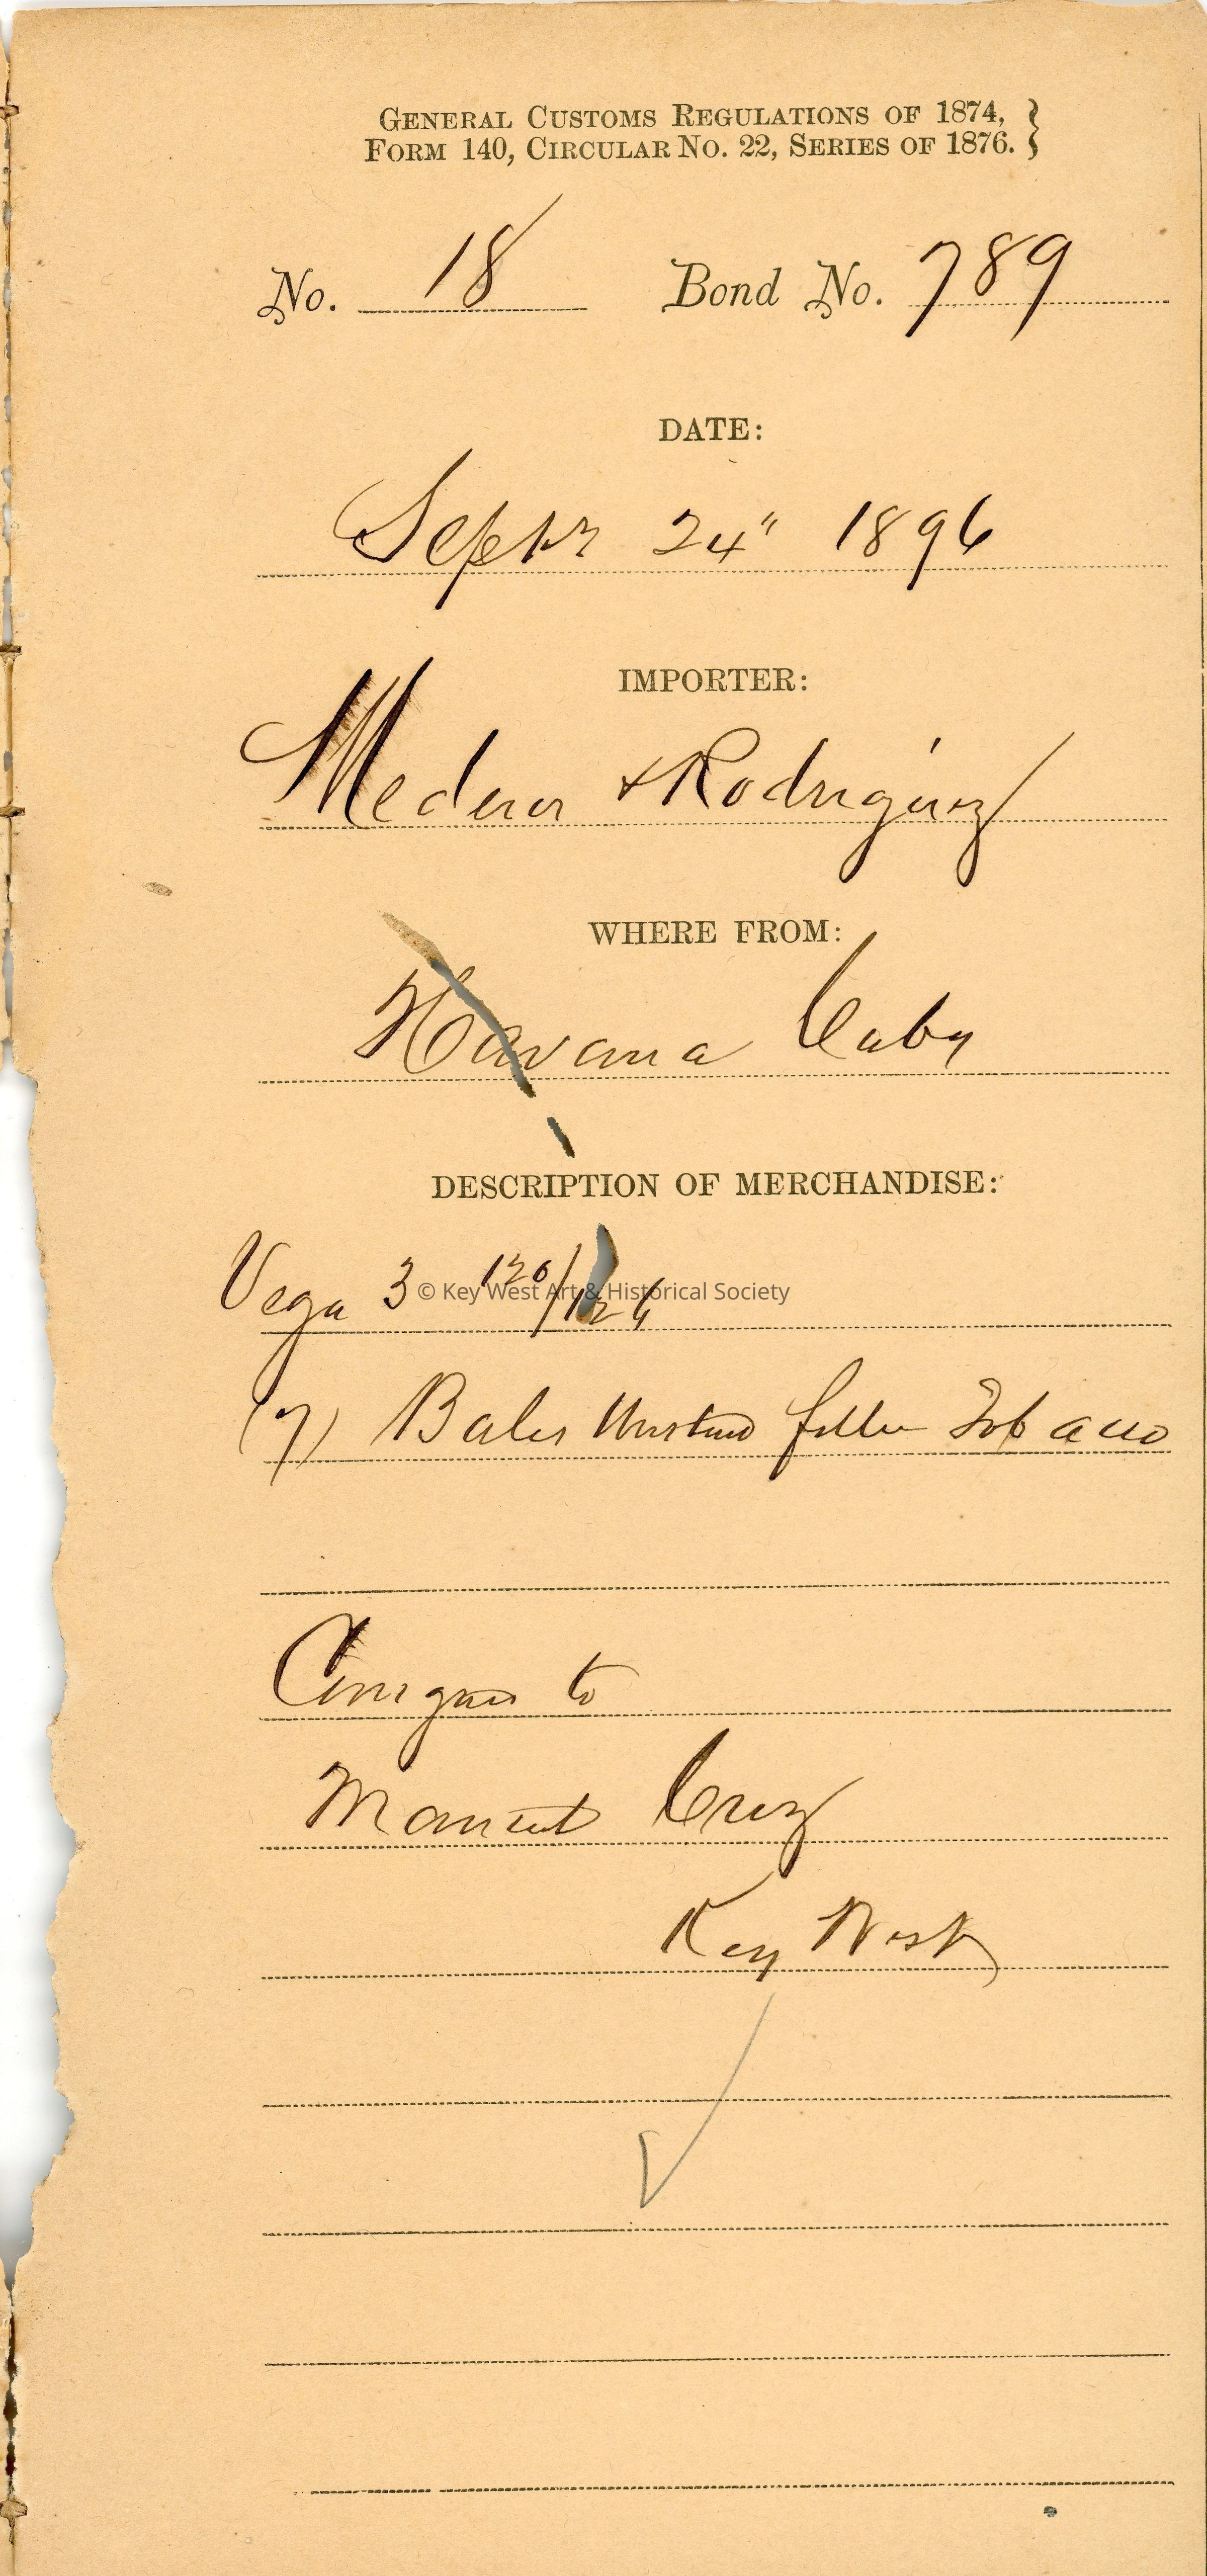 GENERAL CUSTOMS REGULATIONS OF 1874, }
FORM 140, CIRCULAR NO. 22, SERIES OF 1876. }
No. 18 Bond No. 789
DATE:
24" 1896
IMPORTER:
& Rodriguez
WHERE FROM:
Havana Cuba
DESCRIPTION OF MERCHANDISE:
Vega 3 120/126
© Key West Art & Historical Society
(7) Bales filler Tobacco
to
Cruz
Key West